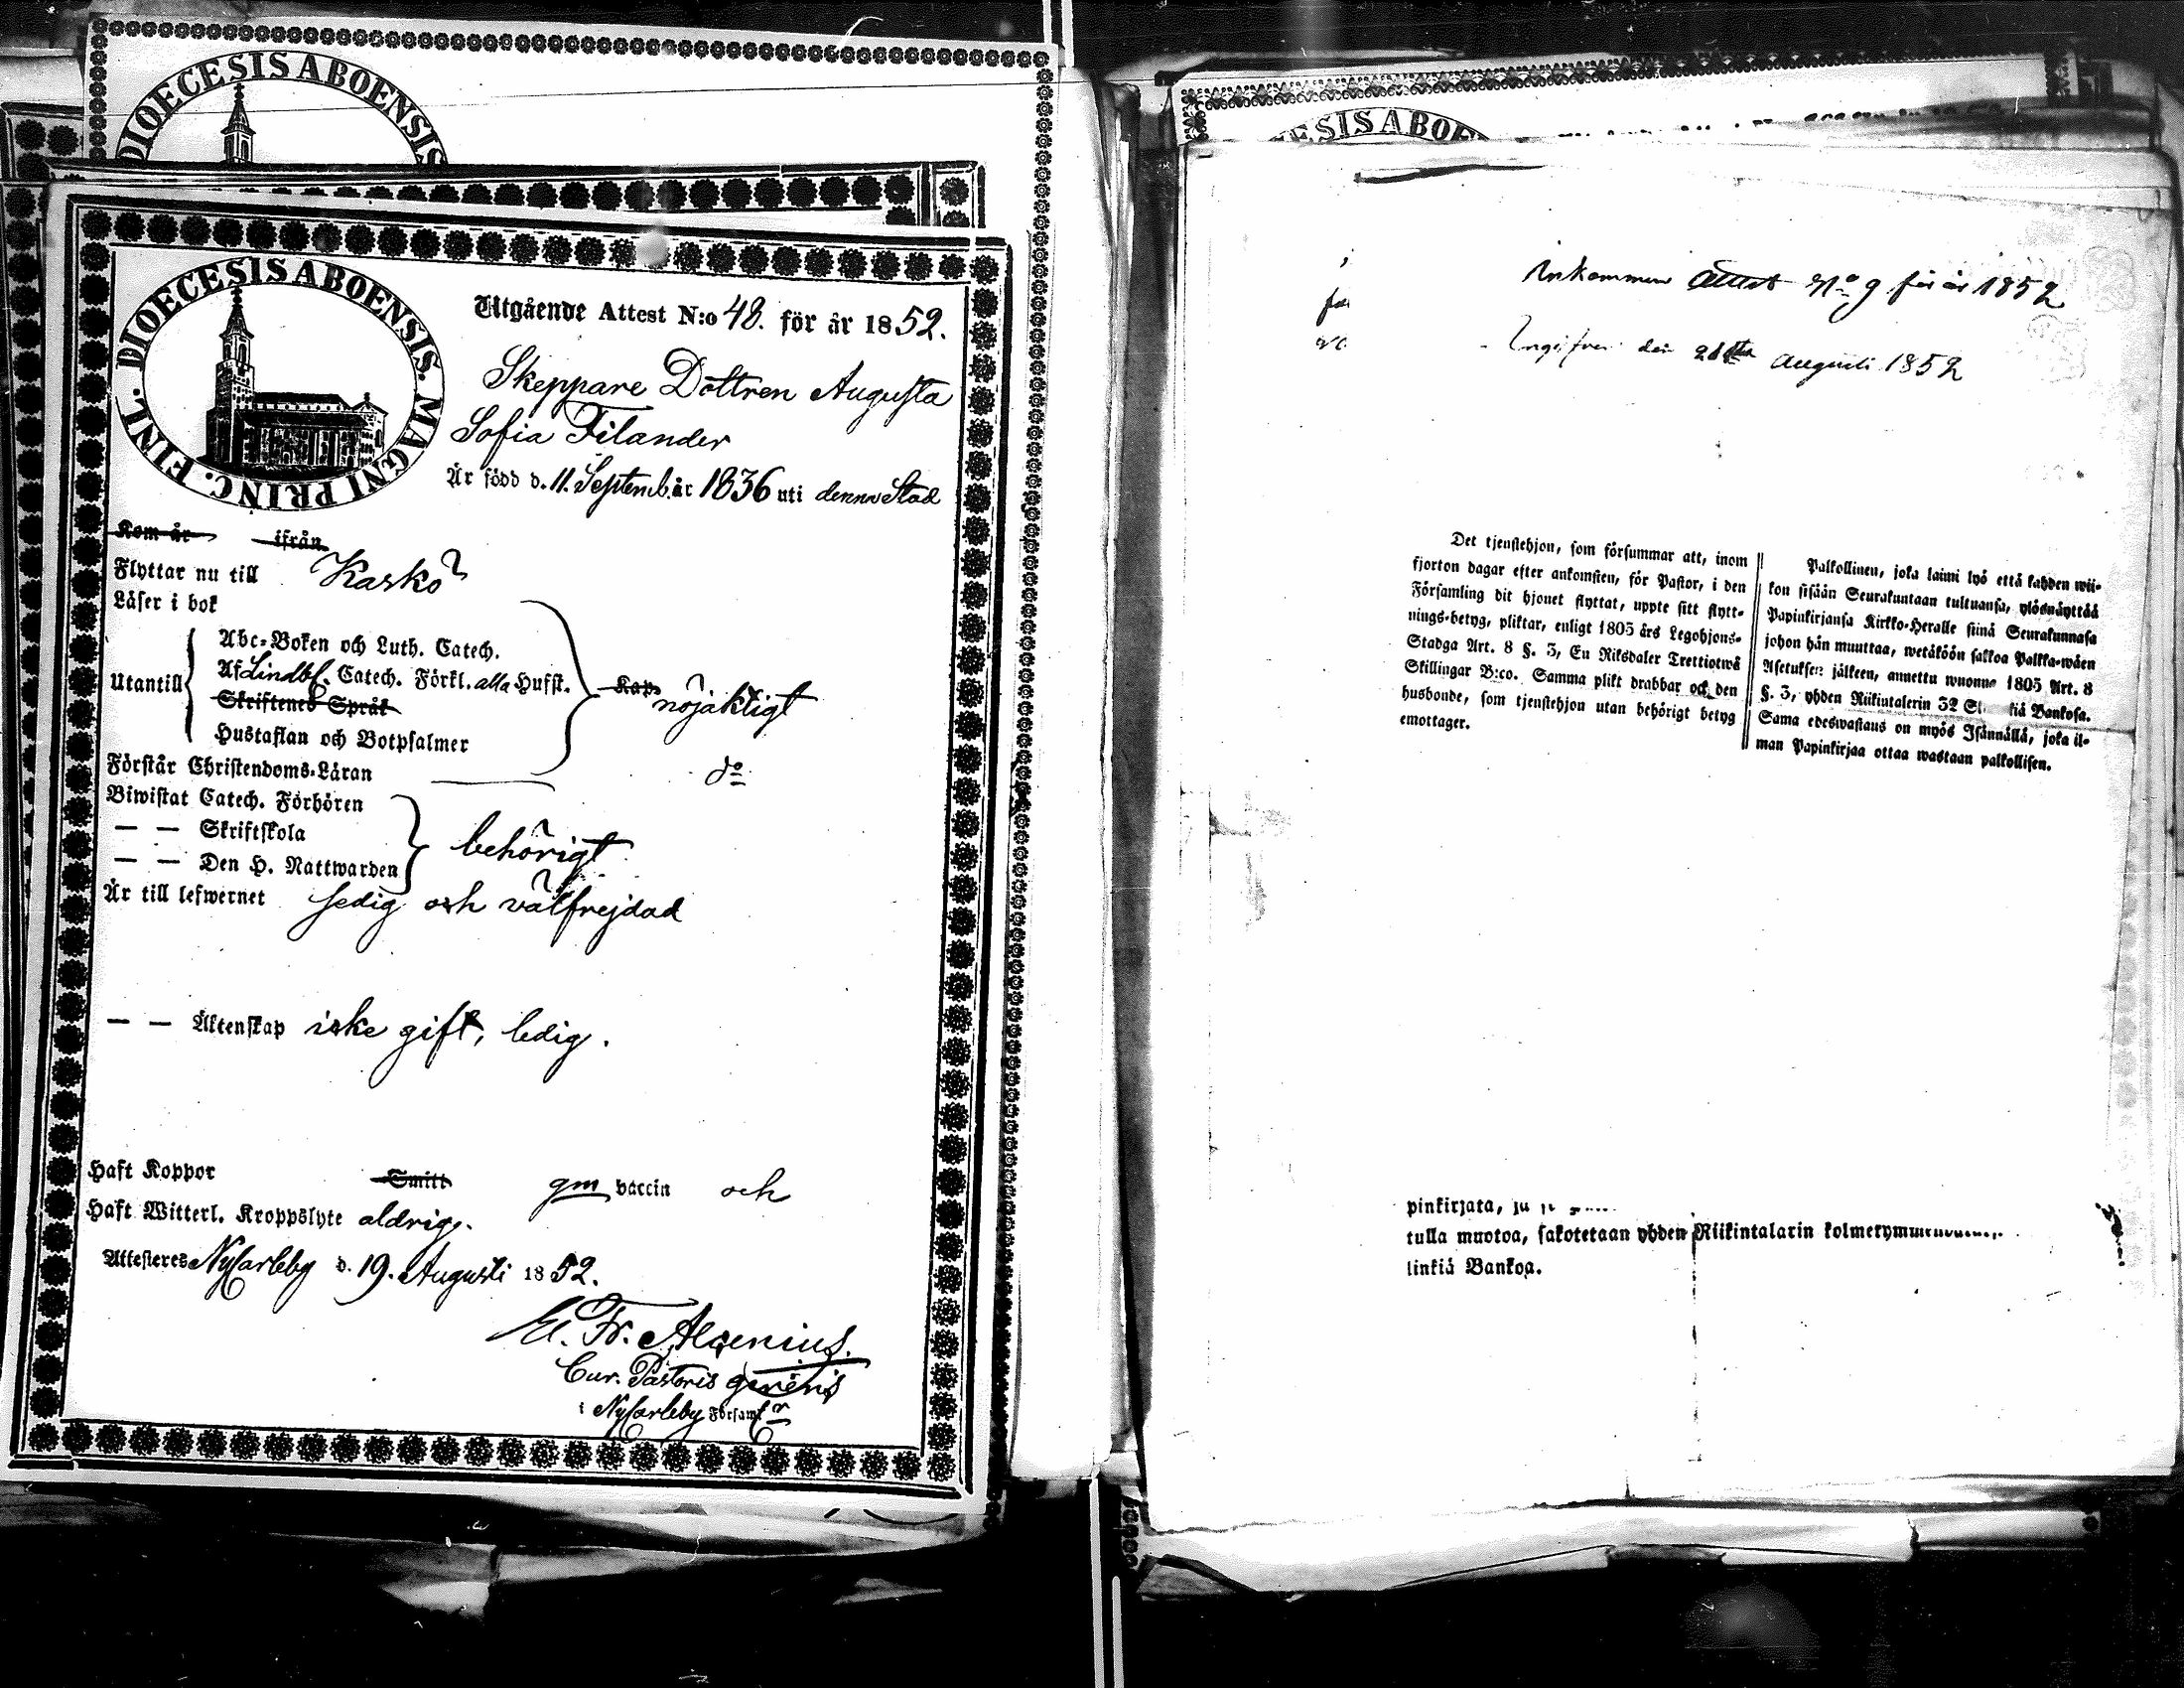 DIOECESIS ABOENSIS
DIOECESIS ABOENSIS. MAGNI PRINC. FINL.
Utgående Attest N:o 48. för år 1852.
Skeppare Dottren Augusta
Sofia Filander
Är född d. 11. Septemb. år 1836 uti denna Stad
Kom år ifrån
Flyttar nu till Kaskö
Läser i bok
Utantill
Abc-Boken och Luth. Catech.
Af Lindbl. Catech. Förkl. alla Hufst.
Skriftenes Språk
Hustaflan och Botpsalmer
nöjaktigt
Förstår Christendoms-Läran do
Biwistat Catech. Förhören
— — Skriftskola
— — Den H. Nattwarden
behörigt
Är till lefwernet sedig och välfrejdad
— — Äktenskap icke gift, ledig.
Haft Koppor Smitt gm vaccin och
Haft Witterl. Kroppslyte aldrig.
Attesteras Nykarleby d. 19. Augusti 1852.
Fr. Alcenius.
Cur. Pastoris gerens
i Nykarleby Församl:n
ESIS ABOE
Inkommen Attest No 9 för år 1852
Ingifven den Augusti 1852
Det tjenstehjon, som försummar att, inom
fjorton dagar efter ankomsten, för Pastor, i den
Församling dit hjonet flyttat, uppte sitt flytt-
nings-betyg, pliktar, enligt 1805 års Legohjons-
Stadga Art. 8 §. 3, En Riksdaler Trettiotwå
Skillingar B:co. Samma plikt drabbar ock den
husbonde, som tjenstehjon utan behörigt betyg
emottager.
Palkollinen, joka laimi lyö että kahden wii-
kon sisään Seurakuntaan tultuansa, ylösnäyttää
Papinkirjansa Kirkko-Heralle siinä Seurakunnasa
johon hän muuttaa, wetäköön sakkoa Palkka-wäen
Asetuksen jälkeen, annettu wuonna 1805 Art. 8
§. 3, yhden Riikintalerin 32 kiä Bankosa.
Sama edeswastaus on myös Isännällä, joka il-
man Papinkirjaa ottaa wastaan palkollisen.
pinkirjata,
tulla muotoa, sakotetaan yhden Riikintalarin
linkiä Bankoa.